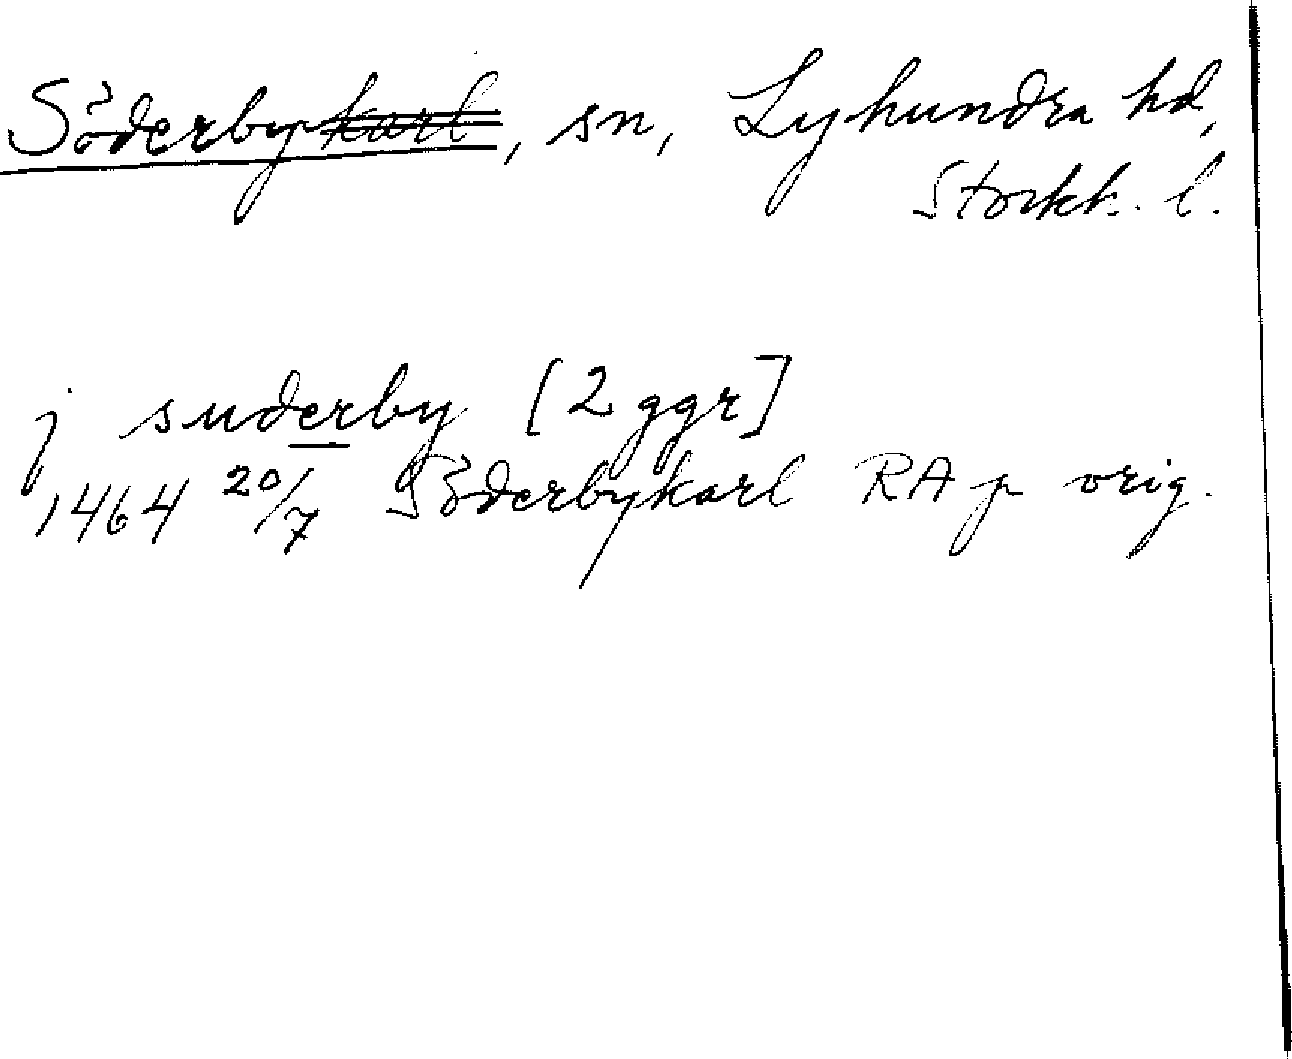 Söderbykarl, sn, Lyhundra hd,
Stockh. l.
j suderby [2 ggr]
1464 20/7 Söderbykarl RA p orig.